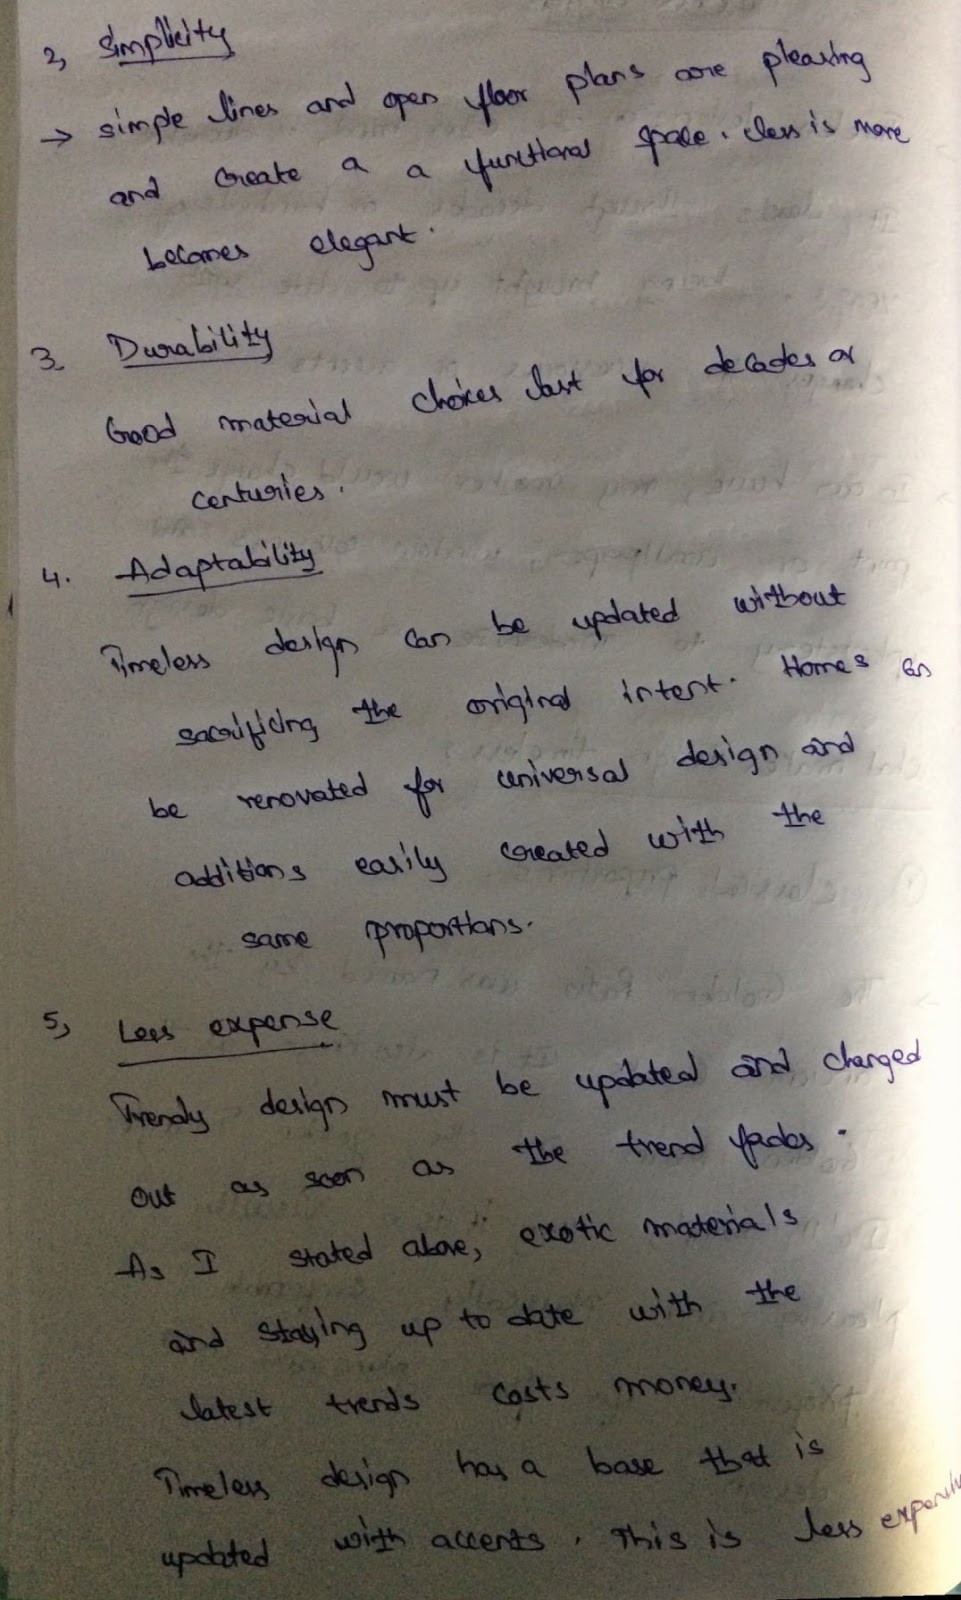 2, Simplicity
→ simple lines and open floor plans are pleasing
and create a a functional space. Less is more
becomes elegant.
3. Durability
Good material choices last for decades or
centuries.
4. Adaptability
Timeless design can be updated without
sacrificing the original intent. Homes can
be renovated for universal design and
additions easily created with the
same proportions.
5, Less expense
Trendy design must be updated and changed
out as soon as the trend fades.
As I stated above, exotic materials
and staying up to date with the
latest trends costs money.
Timeless design has a base that is
updated with accents. This is less